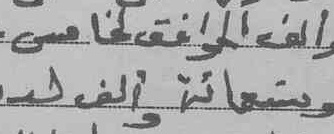 والف الموافق لخامس
وتسعمائة وألف لد